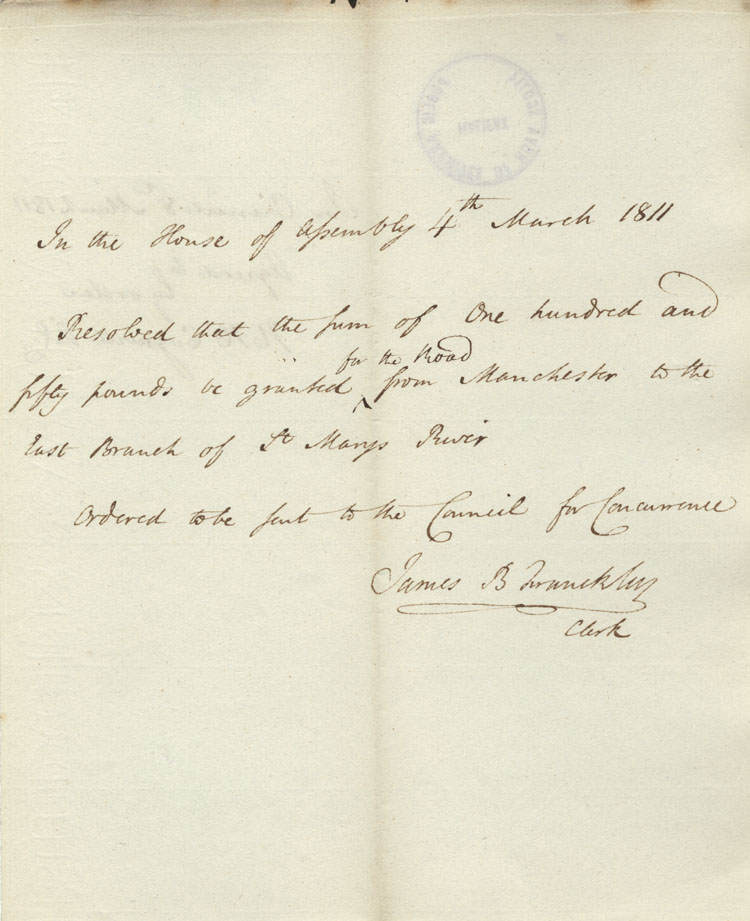 In the House of Assembly 4th March 1811
Resolved that the sum of One hundred and
for the Road
fifty pounds be granted ‸ from Manchester to the
East Branch of St Marys River
Ordered to be sent to the Council for Concurrence
James B Francklin
Clerk